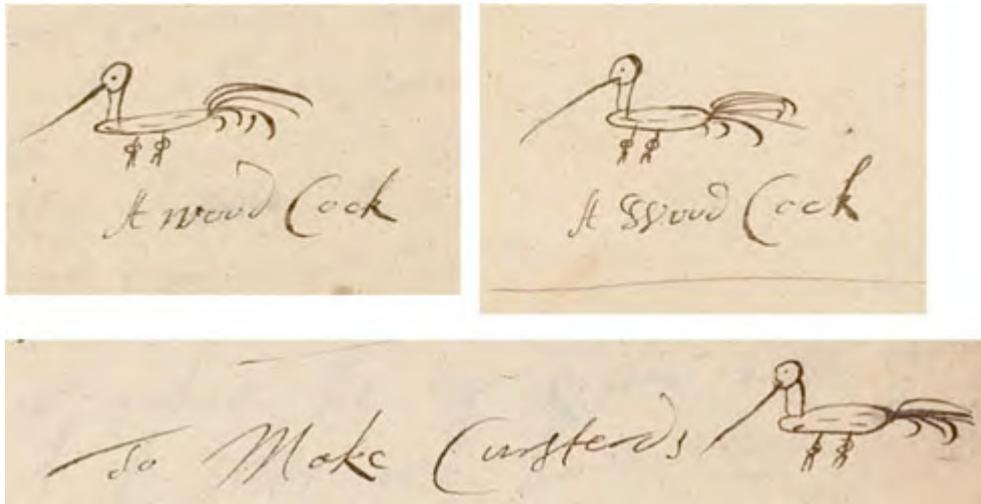 A wood Cock
A Wood Cock
To Make Custerds